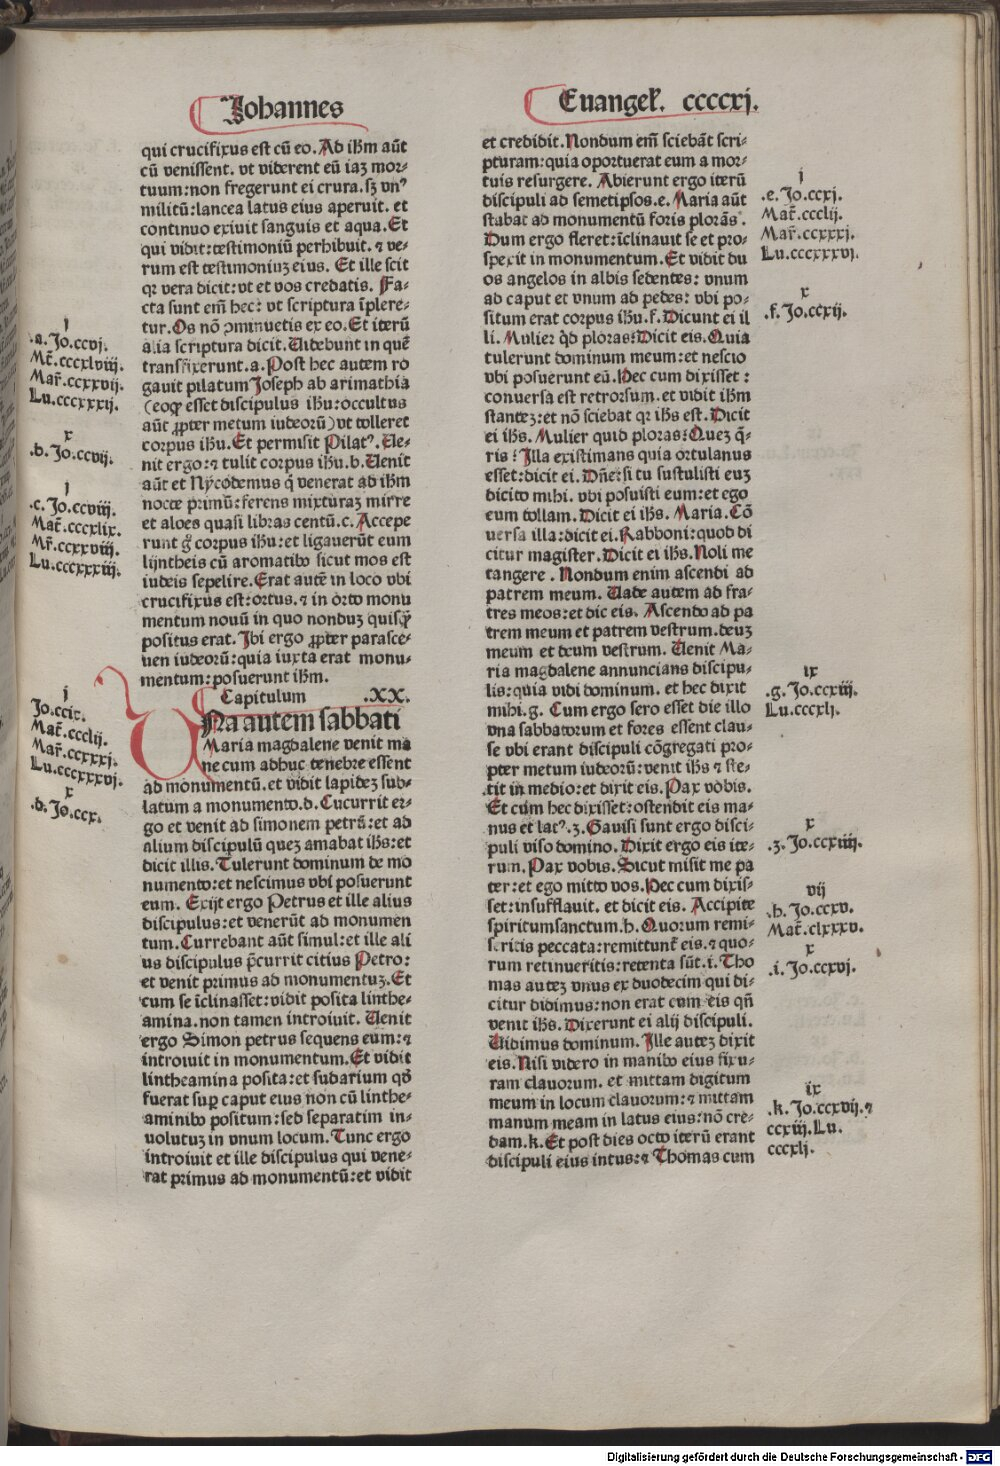 Johannes
Euangeľ. ccccxj.
qui crucifixus est cū eo. Ad ihm aūt
cū venissent. vt viderent eū iaꝫ mor-
tuum: non fregerunt ei crura. sꝫ vn⁹
militū: lancea latus eius aperuit. et
continuo exiuit sanguis et aqua. Et
qui vidit: testimoniū perhibuit. ⁊ ve-
rum est testimoniuꝫ eius. Et ille scit
qꝛ vera dicit: vt et vos credatis. Fa-
cta sunt em̄ hec: vt scriptura īplere-
tur. Os nō ꝯminuetis ex eo. Et iterū
alia scriptura dicit. Uidebunt in quē
transfixerunt. a. Post hec autem ro
gauit pilatum Joseph ab arimathia
(eoqꝫ esset discipulus ihu: occultus
aūt ꝓpter metum iudeorū) vt tolleret
corpus ihu. Et permisit Pilat⁹. Ue-
nit ergo: ⁊ tulit corpus ihu. b. Uenit
aūt et Nycodemus q̄ venerat ad ihm
nocte primū: ferens mixturaꝫ mirre
et aloes quasi libras centū. c. Accepe
runt g̊ corpus ihu: et ligauerūt eum
lijntheis cū aromatibꝰ sicut mos est
iudeis sepelire. Erat autē in loco vbi
crucifixus est: ortus. ⁊ in orto monu
mentum nouū in quo nonduꝫ quisqꝫ̄
positus erat. Ibi ergo ꝓpter parasce-
uen iudeorū: quia iuxta erat monu-
mentum: posuerunt ihm.
Capitulum .XX.
UNa autem sabbati
Maria magdalene venit ma
ne cum adhuc tenebre essent
ad monumentū. et vidit lapideꝫ sub-
latum a monumento. d. Cucurrit er-
go et venit ad simonem petrū: et ad
alium discipulū queꝫ amabat ihs: et
dicit illis. Tulerunt dominum de mo
numento: et nescimus vbi posuerunt
eum. Exijt ergo Petrus et ille alius
discipulus: et venerūt ad monumen
tum. Currebant aūt simul: et ille ali
us discipulus p̄currit citius Petro:
et venit primus ad monumentuꝫ. Et
cum se īclinasset: vidit posita linthe-
amina. non tamen introiuit. Uenit
ergo Simon petrus sequens eum: ⁊
introiuit in monumentum. Et vidit
lintheamina posita: et sudarium qd̄
fuerat suꝑ caput eius non cū linthe-
aminibꝰ positum: sed separatim in-
uolutuꝫ in vnum locum. Tunc ergo
introiuit et ille discipulus qui vene-
rat primus ad monumentū: et vidit
j
.a. Jo.ccvj.
Mt̄.cccxlviij.
Mar̄.ccxxvij.
Lu.cccxxxij.
x
.b. Jo.ccvij.
j
.c. Jo.ccviij.
Mat̄.cccxlix.
Mr̄.ccxxviij.
Lu.cccxxxiij.
j
Jo.ccix.
Mat̄.ccclij.
Mar̄.ccxxxj.
Lu.cccxxxvj.
x
.d. Jo.ccx.
et credidit. Nondum em̄ sciebāt scri-
pturam: quia oportuerat eum a mor-
tuis resurgere. Abierunt ergo iterū
discipuli ad semetipsos. e. Maria aūt
stabat ad monumentū foris plorās.
Dum ergo fleret: īclinauit se et pro-
spexit in monumentum. Et vidit du
os angelos in albis sedentes: vnum
ad caput et vnum ad pedes: vbi po-
situm erat corpus ihu. f. Dicunt ei il
li. Mulier qd̄ ploras? Dicit eis. Quia
tulerunt dominum meum: et nescio
vbi posuerunt eū. Hec cum dixisset:
conuersa est retrorsum. et vidit ihm
stanteꝫ: et nō sciebat qꝛ ihs est. Dicit
ei ihs. Mulier quid ploras? Queꝫ q̄-
ris? Illa existimans quia ortulanus
esset: dicit ei. Dn̄e: si tu sustulisti euꝫ
dicito mihi. vbi posuisti eum: et ego
eum tollam. Dicit ei ihs. Maria. Cō
uersa illa: dicit ei. Rabboni: quod di
citur magister. Dicit ei ihs. Noli me
tangere. Nondum enim ascendi ad
patrem meum. Uade autem ad fra-
tres meos: et dic eis. Ascendo ad pa
trem meum et patrem vestrum. deuꝫ
meum et deum vestrum. Uenit Ma-
ria magdalene annuncians discipu-
lis: quia vidi dominum. et hec dixit
mihi. g. Cum ergo sero esset die illo
vna sabbatorum et fores essent clau-
se vbi erant discipuli cōgregati pro-
pter metum iudeorū: venit ihs ⁊ ste-
tit in medio: et dixit eis. Pax vobis.
Et cum hec dixisset: ostendit eis ma-
nus et lat⁹. ꝫ. Gauisi sunt ergo disci-
puli viso domino. Dixit ergo eis ite-
rum. Pax vobis. Sicut misit me pa
ter: et ego mitto vos. Hec cum dixis-
set: insufflauit. et dicit eis. Accipite
spiritumsanctum. h. Quorum remi-
seritis peccata: remittunt̄ eis. ⁊ quo-
rum retinueritis: retenta sūt. i. Tho
mas auteꝫ vnus ex duodecim qui di-
citur didimus: non erat cum eis qn̄
venit ihs. Dixerunt ei alij discipuli.
Uidimus dominum. Ille auteꝫ dixit
eis. Nisi videro in manibꝰ eius fixu-
ram clauorum. et mittam digitum
meum in locum clauorum: ⁊ mittam
manum meam in latus eius: nō cre-
dam. k. Et post dies octo iterū erant
discipuli eius intus: ⁊ Thomas cum
j
.e. Jo.ccxj.
Mat̄.ccclij.
Mar̄.ccxxxj.
Lu.cccxxxvj.
x
.f. Jo.ccxij.
ix
.g. Jo.ccxiij.
Lu.cccxlj.
x
.ꝫ. Jo.ccxiiij.
vij
.h. Jo.ccxv.
Mat̄.clxxxv.
x
.i. Jo.ccxvj.
ix
.k. Jo.ccxvij. ⁊
ccxiij. Lu.
cccxlj.
Digitalisierung gefördert durch die Deutsche Forschungsgemeinschaft - DFG